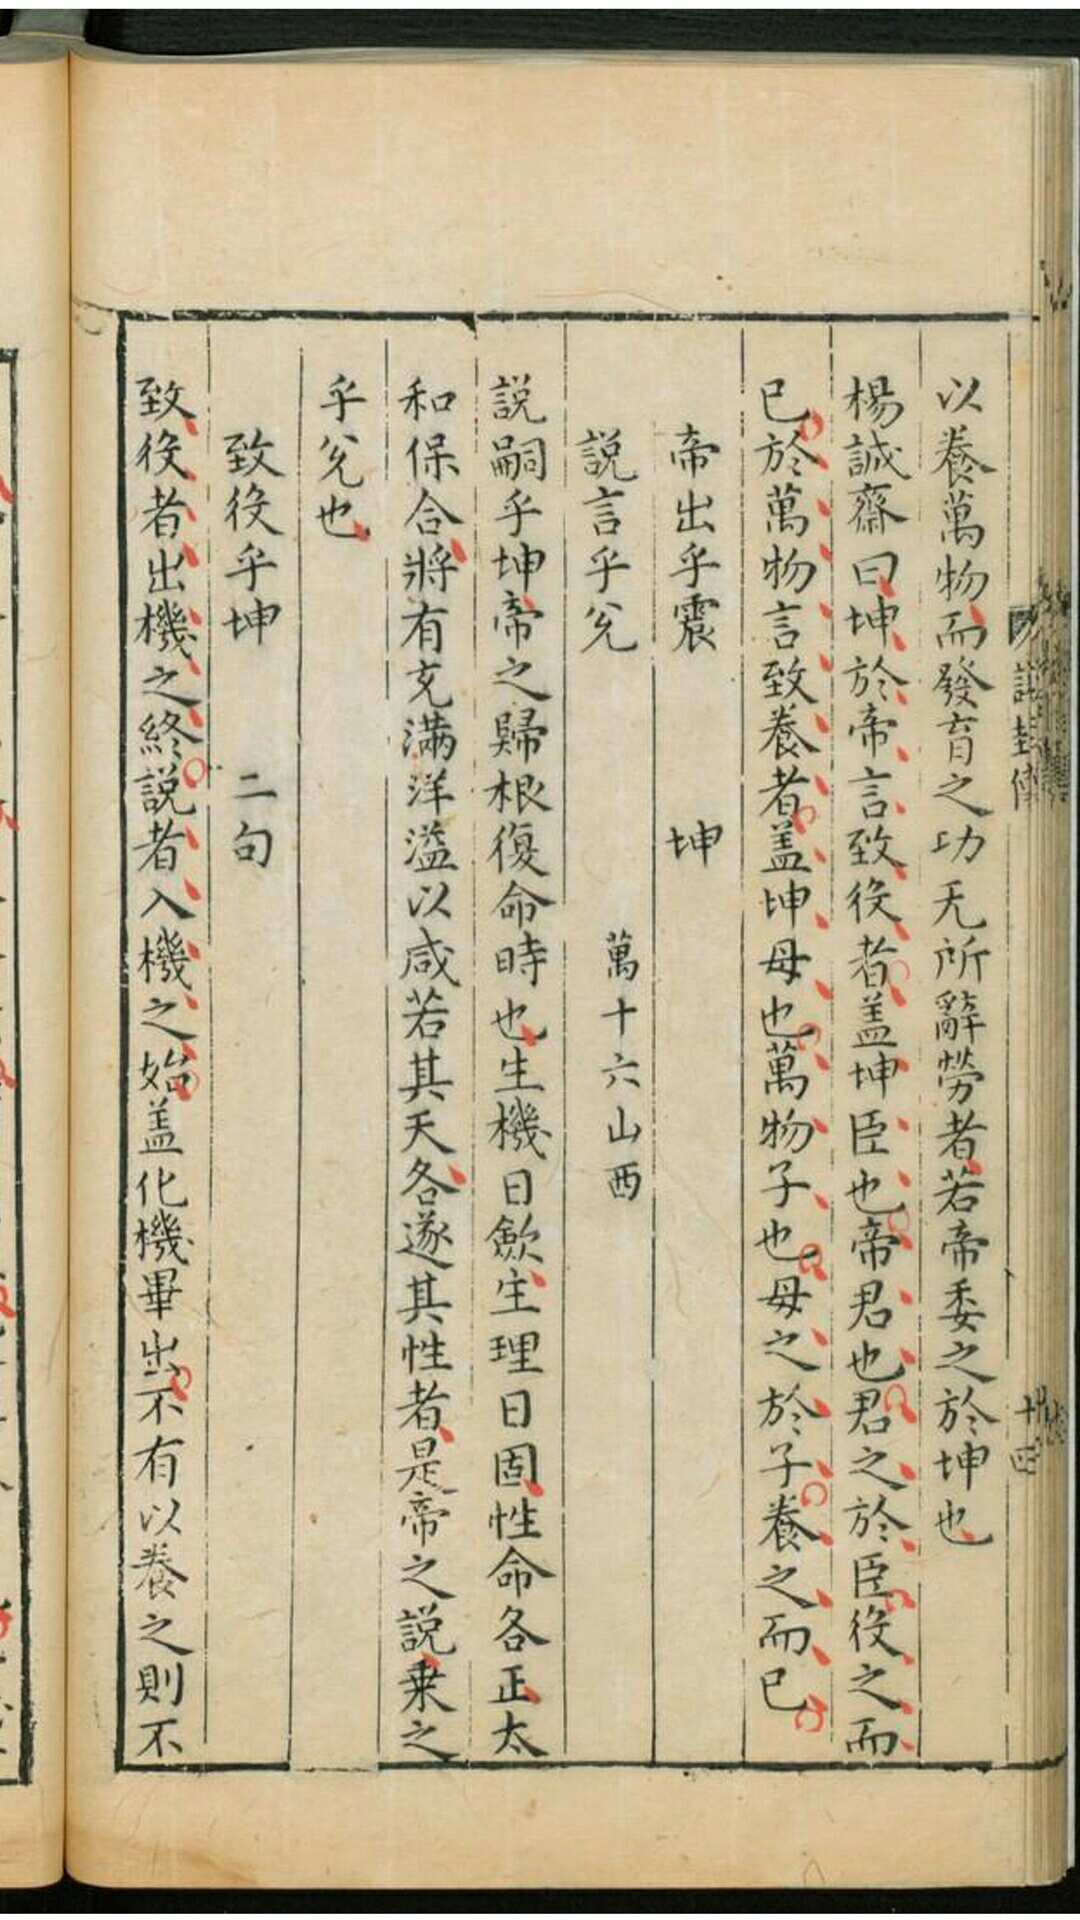 以養萬物而發育之功无所辭勞者若帝委之於坤也
楊誠齋曰坤於帝言致役者盖坤臣也帝君也君之於臣役之而
已於萬物言致養者盖坤母也萬物子也母之於子養之而已
帝出乎震 坤
説言乎兌 萬十六山西
説嗣乎坤帝之歸根復命時也生機日歛生理日固性命各正太
和保合將有充滿洋溢以咸若其天各遂其性者是帝之説乗之
乎兌也
致役乎坤 二句
致役者出機之終説者入機之始盖化機畢出不有以養之則不
説卦傳
十四